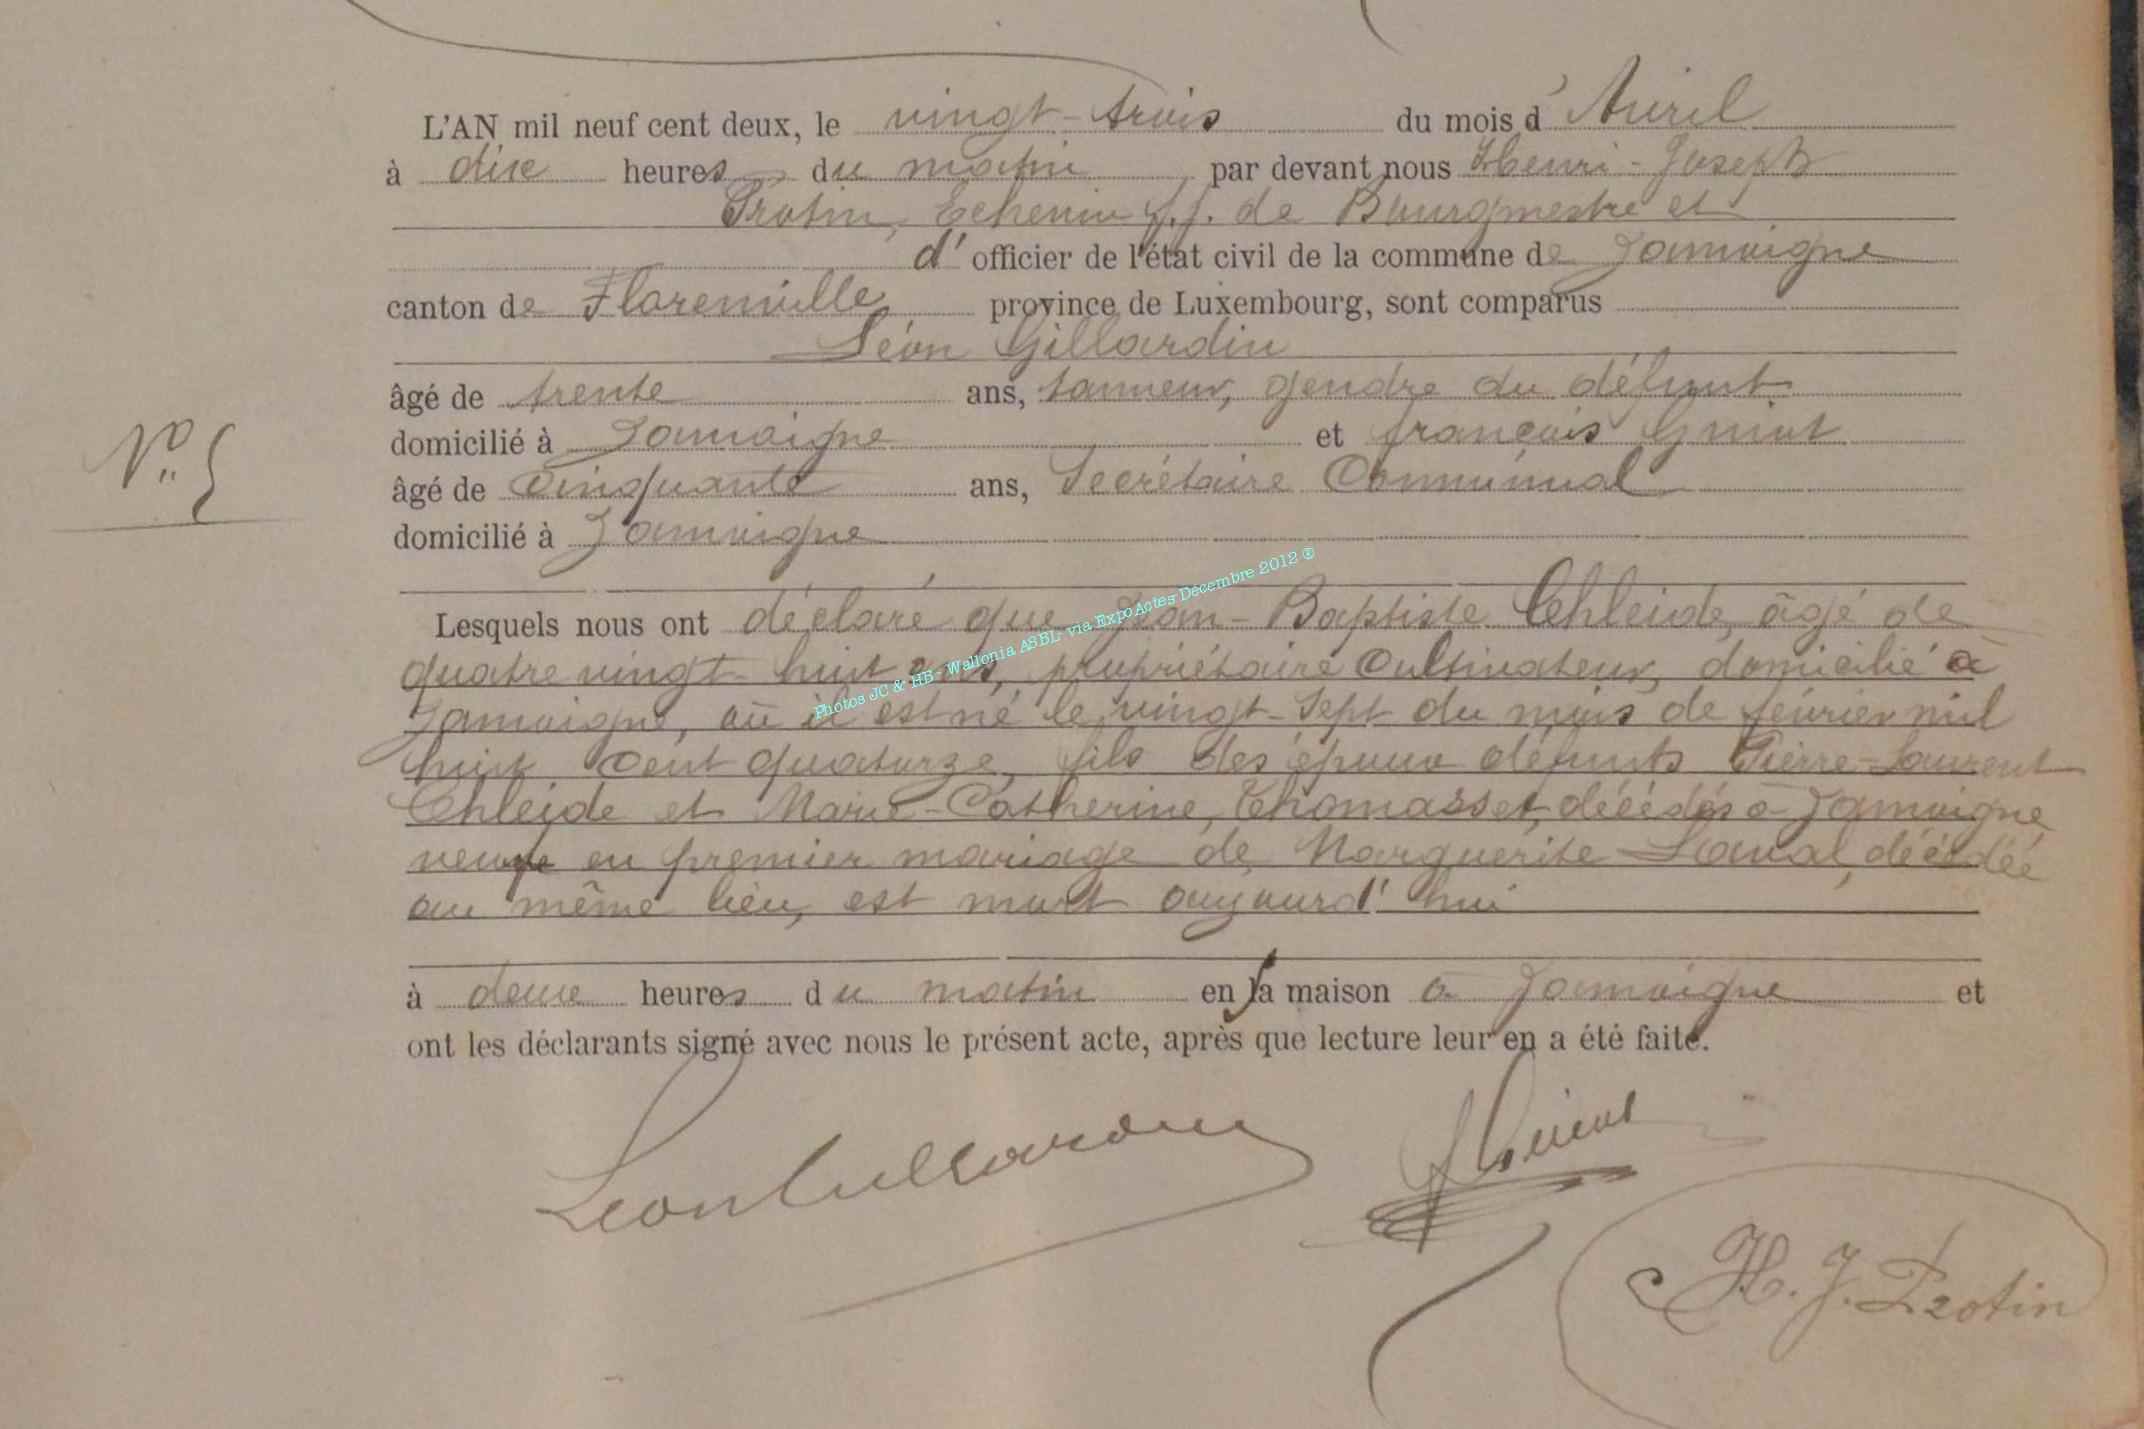 L'AN mil neuf cent deux, le vingt-trois du mois d'Avril
à dix heures du matin par devant nous Henri-Joseph
Protin, Echevin f.f. de Bourgmestre et
d' officier de l'état civil de la commune de Jamoigne
canton de Florenville province de Luxembourg, sont comparus
Léon Gillardin
âgé de trente ans, tanneur, gendre du défunt
domicilié à Jamoigne et françois
N° 5
âgé de Cinquante ans, Secrétaire Communal
domicilié à Jamoigne
Lesquels nous ont déclaré que Jean-Baptiste Chleide, âgé de
quatre vingt-huit ans, propriétaire Cultivateur, domicilié à
Jamoigne, où il est né le vingt-Sept du mois de février mil
huit Cent quatorze, fils des époux défunts Pierre-Laurent
Chleide et Marie-Catherine, Thomasset, décédés à Jamoigne
veuf en premier mariage de Marguerite Laval, décédée
au même lieu, est mort aujourd'hui
à deux heures du matin en sa maison à Jamoigne et
ont les déclarants signé avec nous le présent acte, après que lecture leur en a été faite.
Photos JC & HB - Wallonia ASBL- via ExpoActes-Décembre 2012 ®
Leon Gillardin
H. J. Protin